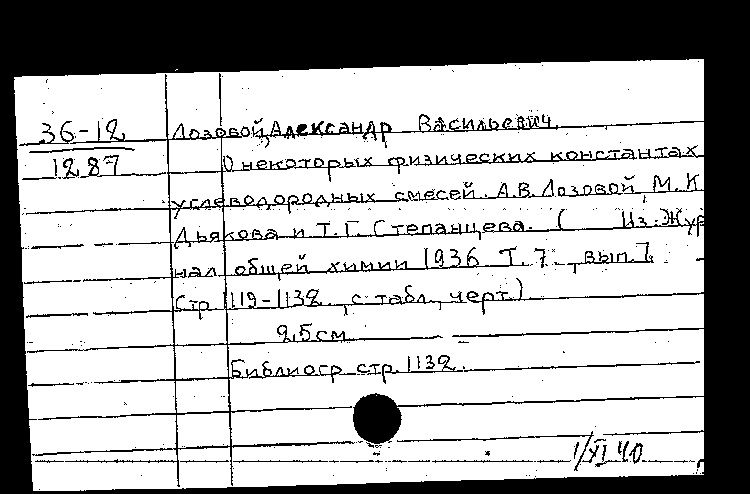 36-12
1287
Лозовой, Александр Васильевич.
О некоторых физических константах
углеводородных смесей. А.В. Лозовой, М.К
Дьякова и Т.Г. Степанцева. ( Из: Жур
нал общей химии 1936 Т. 7. , вып. 7.
Стр. 1119-1132 , с табл., черт.)
25 см
Библиогр стр. 1132.
1/XI 40